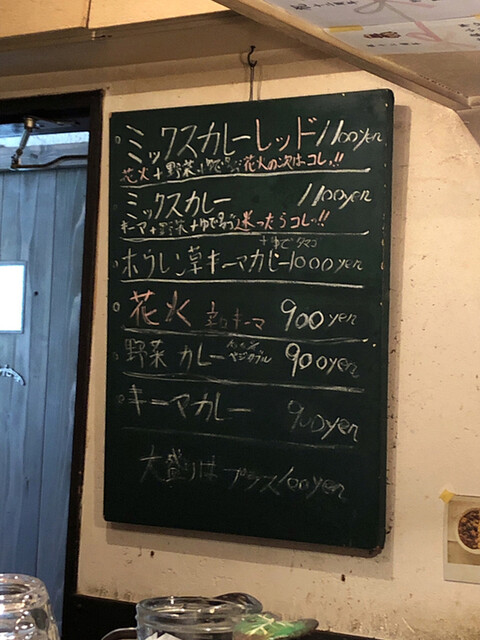 ミックスカレーレッド 1100yen
花火+野菜+ゆで卵 花火の次はコレ!!
ミックスカレー 1100yen
キーマ+野菜+ゆで卵 迷ったらコレ!!
+ゆでタマゴ
ホウレン草キーマカレー 1000yen
花火 辛口キーマ 900yen
野菜カレー ベジタブル 900yen
キーマカレー 900yen
大盛りは プラス100yen